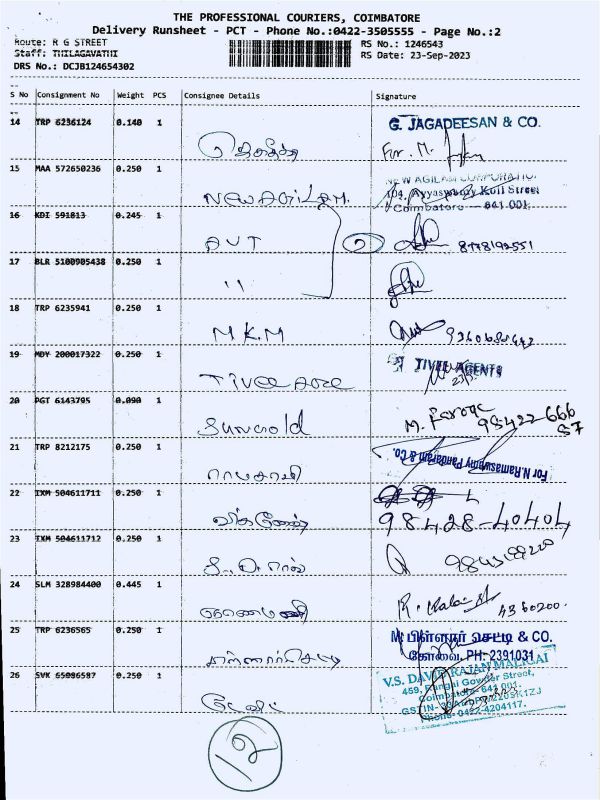 THE PROFESSIONAL COURIERS, COIMBATORE
Delivery Runsheet - PCT - Phone No.:0422-3505555 - Page No.:2
Route: R G STREET
RS No.: 1246543
Staff: THILAGAVATHI
RS Date: 23-Sep-2023
DRS No.: DCJB124654302
S No Consignment No Weight PCS Consignee Details Signature
14 TRP 6236124 0.140 1
G. JAGADEESAN & CO.
For. M.
15 MAA 572650236 0.250 1
NEW AGILAM CORPORATIO
104, Ayyaswamy Koil Street
Coimbatore - 641 001.
16 KDI 591813 0.245 1
AVT
2
8778192551
17 BLR 5100905438 0.250 1
"
18 TRP 6235941 0.250 1
M.K.M
19 MDY 200017322 0.250 1
TIVEL AGENTS
20 PGT 6143795 0.090 1
Sungold
M. Farooq
98422-666
57
21 TRP 8212175 0.250 1
ராமசாமி
For N.Ramaswamy Pandaram & Co.
22 IXM 504611711 0.250 1
98428-40404
23 IXM 504611712 0.250 1
24 SLM 328984400 0.445 1
4360200.
25 TRP 6236565 0.250 1
M பிள்ளார் செட்டி & CO.
கோவை. PH: 2391031
26 SVK 65086587 0.250 1
டேவிட்
V.S. DAVID RAJAN MALIGAI
459, Rangai Gowder Street,
Coimbatore - 641 001.
Phone: 0422-4204117.
12